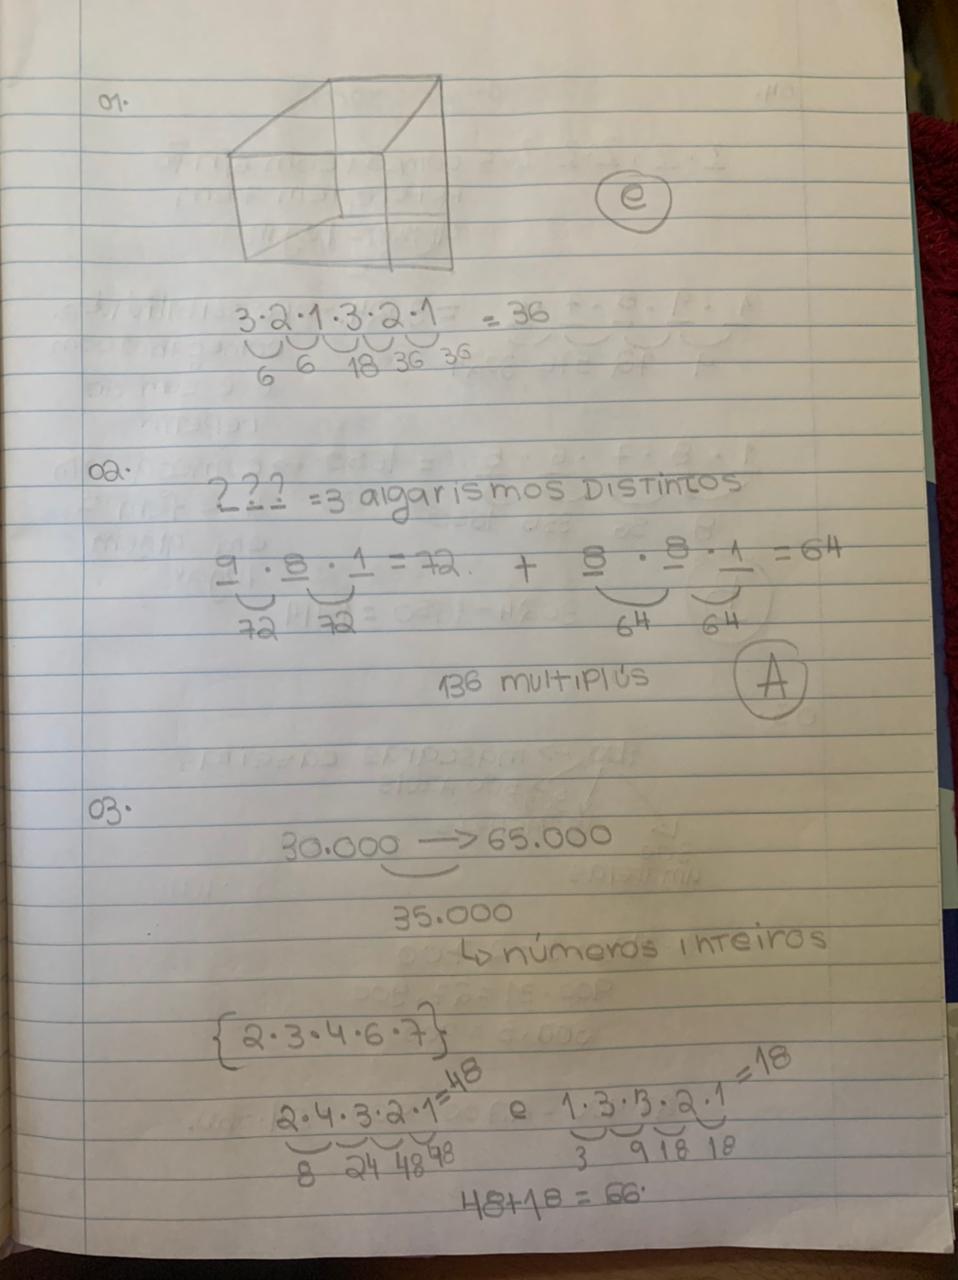 01.
e
3·2·1·3·2·1 = 36
6 6 18 36 36
02.
? ? ? = 3 algarismos DISTINTOS
9 · 8 · 1 = 72. + 8 · 8 · 1 = 64
72 72 64 64
136 multiplús A
03.
30.000 —> 65.000
35.000
↳ números inteiros
{2·3·4·6·7}
2·4·3·2·1 = 48 e 1·3·3·2·1 = 18
8 24 48 48 3 9 18 18
48+18 = 66.